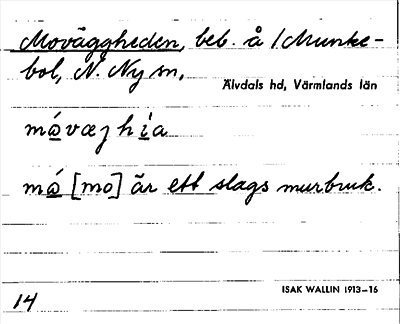 Moväggheden, beb. å /Munke-
bol, N. Ny sn,
Älvdals hd, Värmlands län
má̲væʒhi̲a
má̲ [mo] är ett slags murbruk.
ISAK WALLIN 1913–16
14